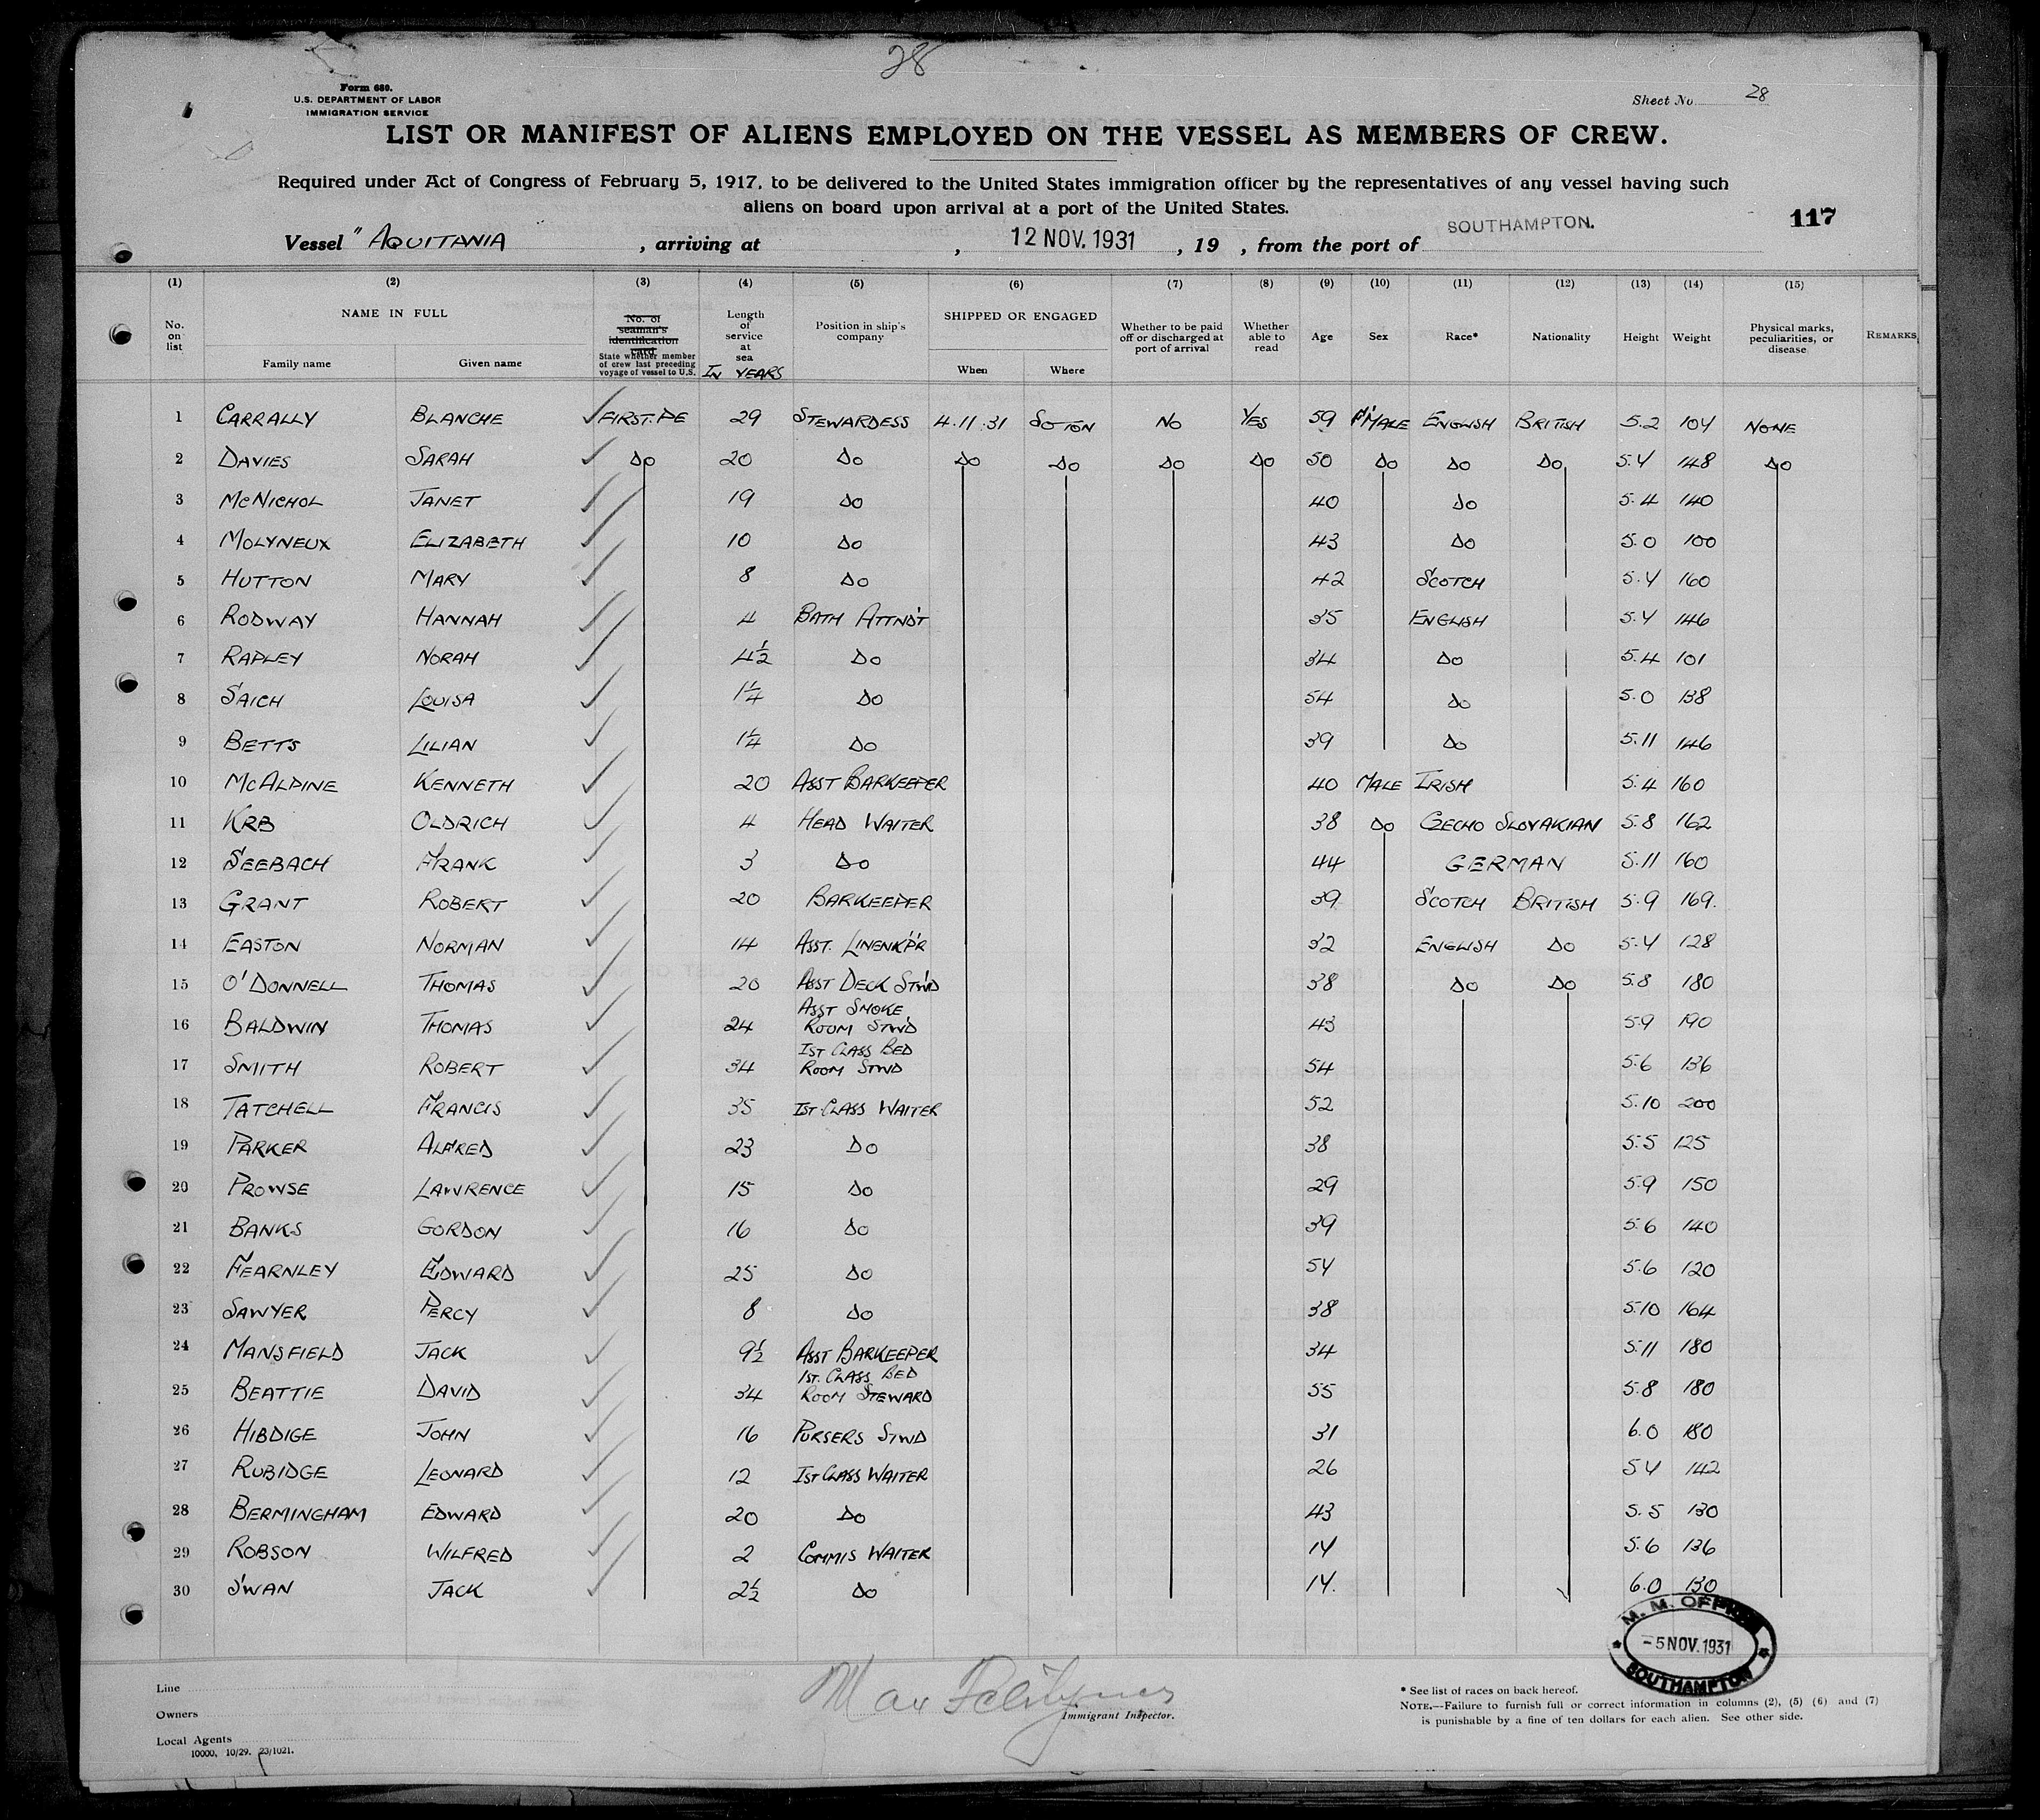 28
Form 680.
U.S. DEPARTMENT OF LABOR
IMMIGRATION SERVICE
Sheet No. 28
LIST OR MANIFEST OF ALIENS EMPLOYED ON THE VESSEL AS MEMBERS OF CREW.
Required under Act of Congress of February 5, 1917, to be delivered to the United States immigration officer by the representatives of any vessel having such
aliens on board upon arrival at a port of the United States.
117
Vessel "AQUITANIA , arriving at , 12 NOV. 1931 , 19 , from the port of SOUTHAMPTON.
(1) (2) (3) (4) (5) (6) (7) (8) (9) (10) (11) (12) (13) (14) (15)
No. on list NAME IN FULL Family name Given name No. of seaman's identification card State whether member of crew last preceding voyage of vessel to U.S. Length of service at sea IN YEARS Position in ship's company SHIPPED OR ENGAGED When Where Whether to be paid off or discharged at port of arrival Whether able to read Age Sex Race* Nationality Height Weight Physical marks, peculiarities, or disease REMARKS
1 CARRALLY BLANCHE FIRST.PE 29 STEWARDESS 4.11.31 SOTON NO YES 59 F'MALE ENGLISH BRITISH 5.2 104 NONE
2 DAVIES SARAH DO 20 DO DO DO DO DO 50 DO DO DO 5.4 148 DO
3 McNICHOL JANET 19 DO 40 DO 5.4 140
4 MOLYNEUX ELIZABETH 10 DO 43 DO 5.0 100
5 HUTTON MARY 8 DO 42 SCOTCH 5.4 160
6 RODWAY HANNAH 4 BATH ATTND'T 35 ENGLISH 5.4 146
7 RAPLEY NORAH 4½ DO 34 DO 5.4 101
8 SAICH LOUISA 1¼ DO 54 DO 5.0 138
9 BETTS LILIAN 1¼ DO 39 DO 5.11 146
10 McALPINE KENNETH 20 ASST BARKEEPER 40 MALE IRISH 5.4 160
11 KRB OLDRICH 4 HEAD WAITER 38 DO CZECHO SLOVAKIAN 5.8 162
12 SEEBACH FRANK 3 DO 44 GERMAN 5.11 160
13 GRANT ROBERT 20 BARKEEPER 39 SCOTCH BRITISH 5.9 169.
14 EASTON NORMAN 14 ASST. LINENK'P'R 32 ENGLISH DO 5.4 128
15 O'DONNELL THOMAS 20 ASST DECK STW'D 38 DO DO 5.8 180
16 BALDWIN THOMAS 24 ASST SMOKE ROOM STW'D 43 5.9 190
17 SMITH ROBERT 34 1ST CLASS BED ROOM STWD 54 5.6 136
18 TATCHELL FRANCIS 35 1ST CLASS WAITER 52 5.10 200
19 PARKER ALFRED 23 DO 38 5.5 125
20 PROWSE LAWRENCE 15 DO 29 5.9 150
21 BANKS GORDON 16 DO 39 5.6 140
22 FEARNLEY EDWARD 25 DO 54 5.6 120
23 SAWYER PERCY 8 DO 38 5.10 164
24 MANSFIELD JACK 9½ ASST BARKEEPER 34 5.11 180
25 BEATTIE DAVID 34 1ST. CLASS BED ROOM STEWARD 55 5.8 180
26 HIBDIGE JOHN 16 PURSERS STWD 31 6.0 180
27 RUBIDGE LEONARD 12 1ST CLASS WAITER 26 5.4 142
28 BERMINGHAM EDWARD 20 DO 43 5.5 130
29 ROBSON WILFRED 2 COMMIS WAITER 14 5.6 136
30 SWAN JACK 2½ DO 14. 6.0 130
M. M. OFFICE
-5 NOV. 1931
SOUTHAMPTON
Line
Owners
Local Agents
10000, 10/29. 23/1021.
Max
Immigrant Inspector.
* See list of races on back hereof.
NOTE.—Failure to furnish full or correct information in columns (2), (5) (6) and (7)
is punishable by a fine of ten dollars for each alien. See other side.